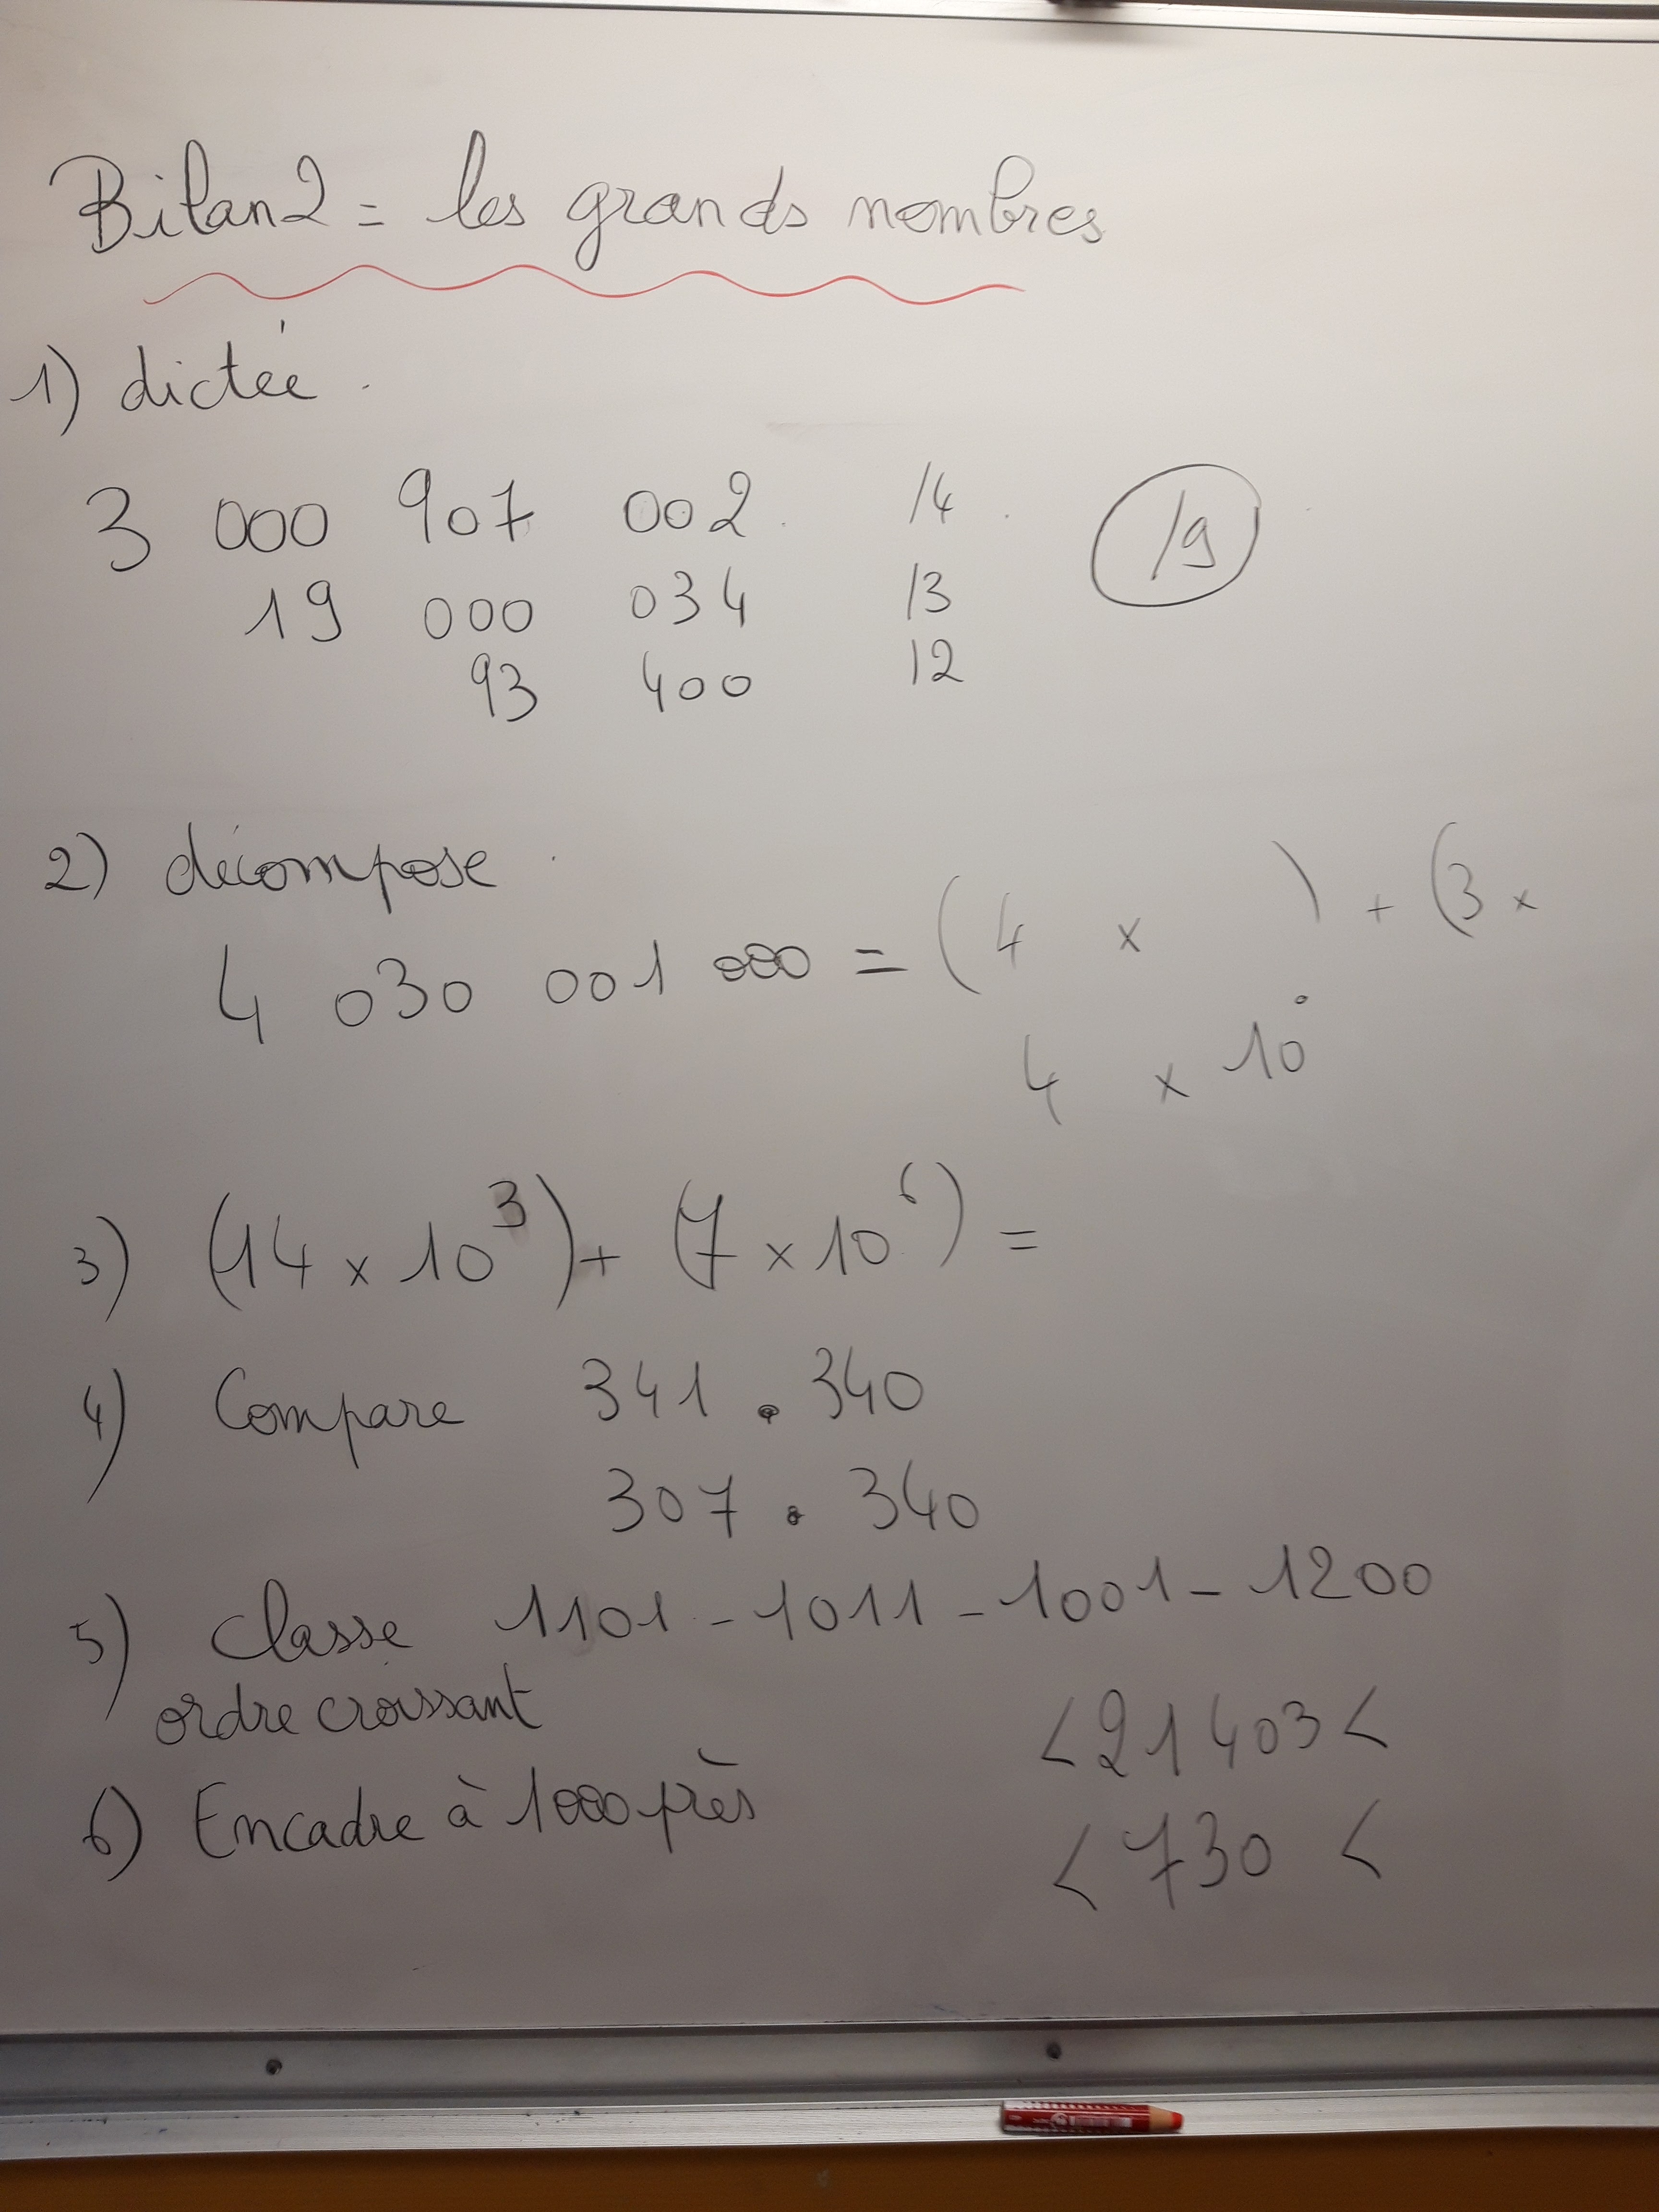 Bilan 2 = les grands nombres
1) dictée
3 000 907 002 /4 /9
19 000 034 /3
93 400 /2
2) décompose
4 030 001 000 = (4 × ) + (3 ×
4 × 10°
3) (14 × 10³) + (7 × 10⁶) =
4) Compare 341 . 340
307 . 340
5) Classe 1101 - 1011 - 1001 - 1200
ordre croissant
< 21403 <
6) Encadre à 1000 près
< 730 <